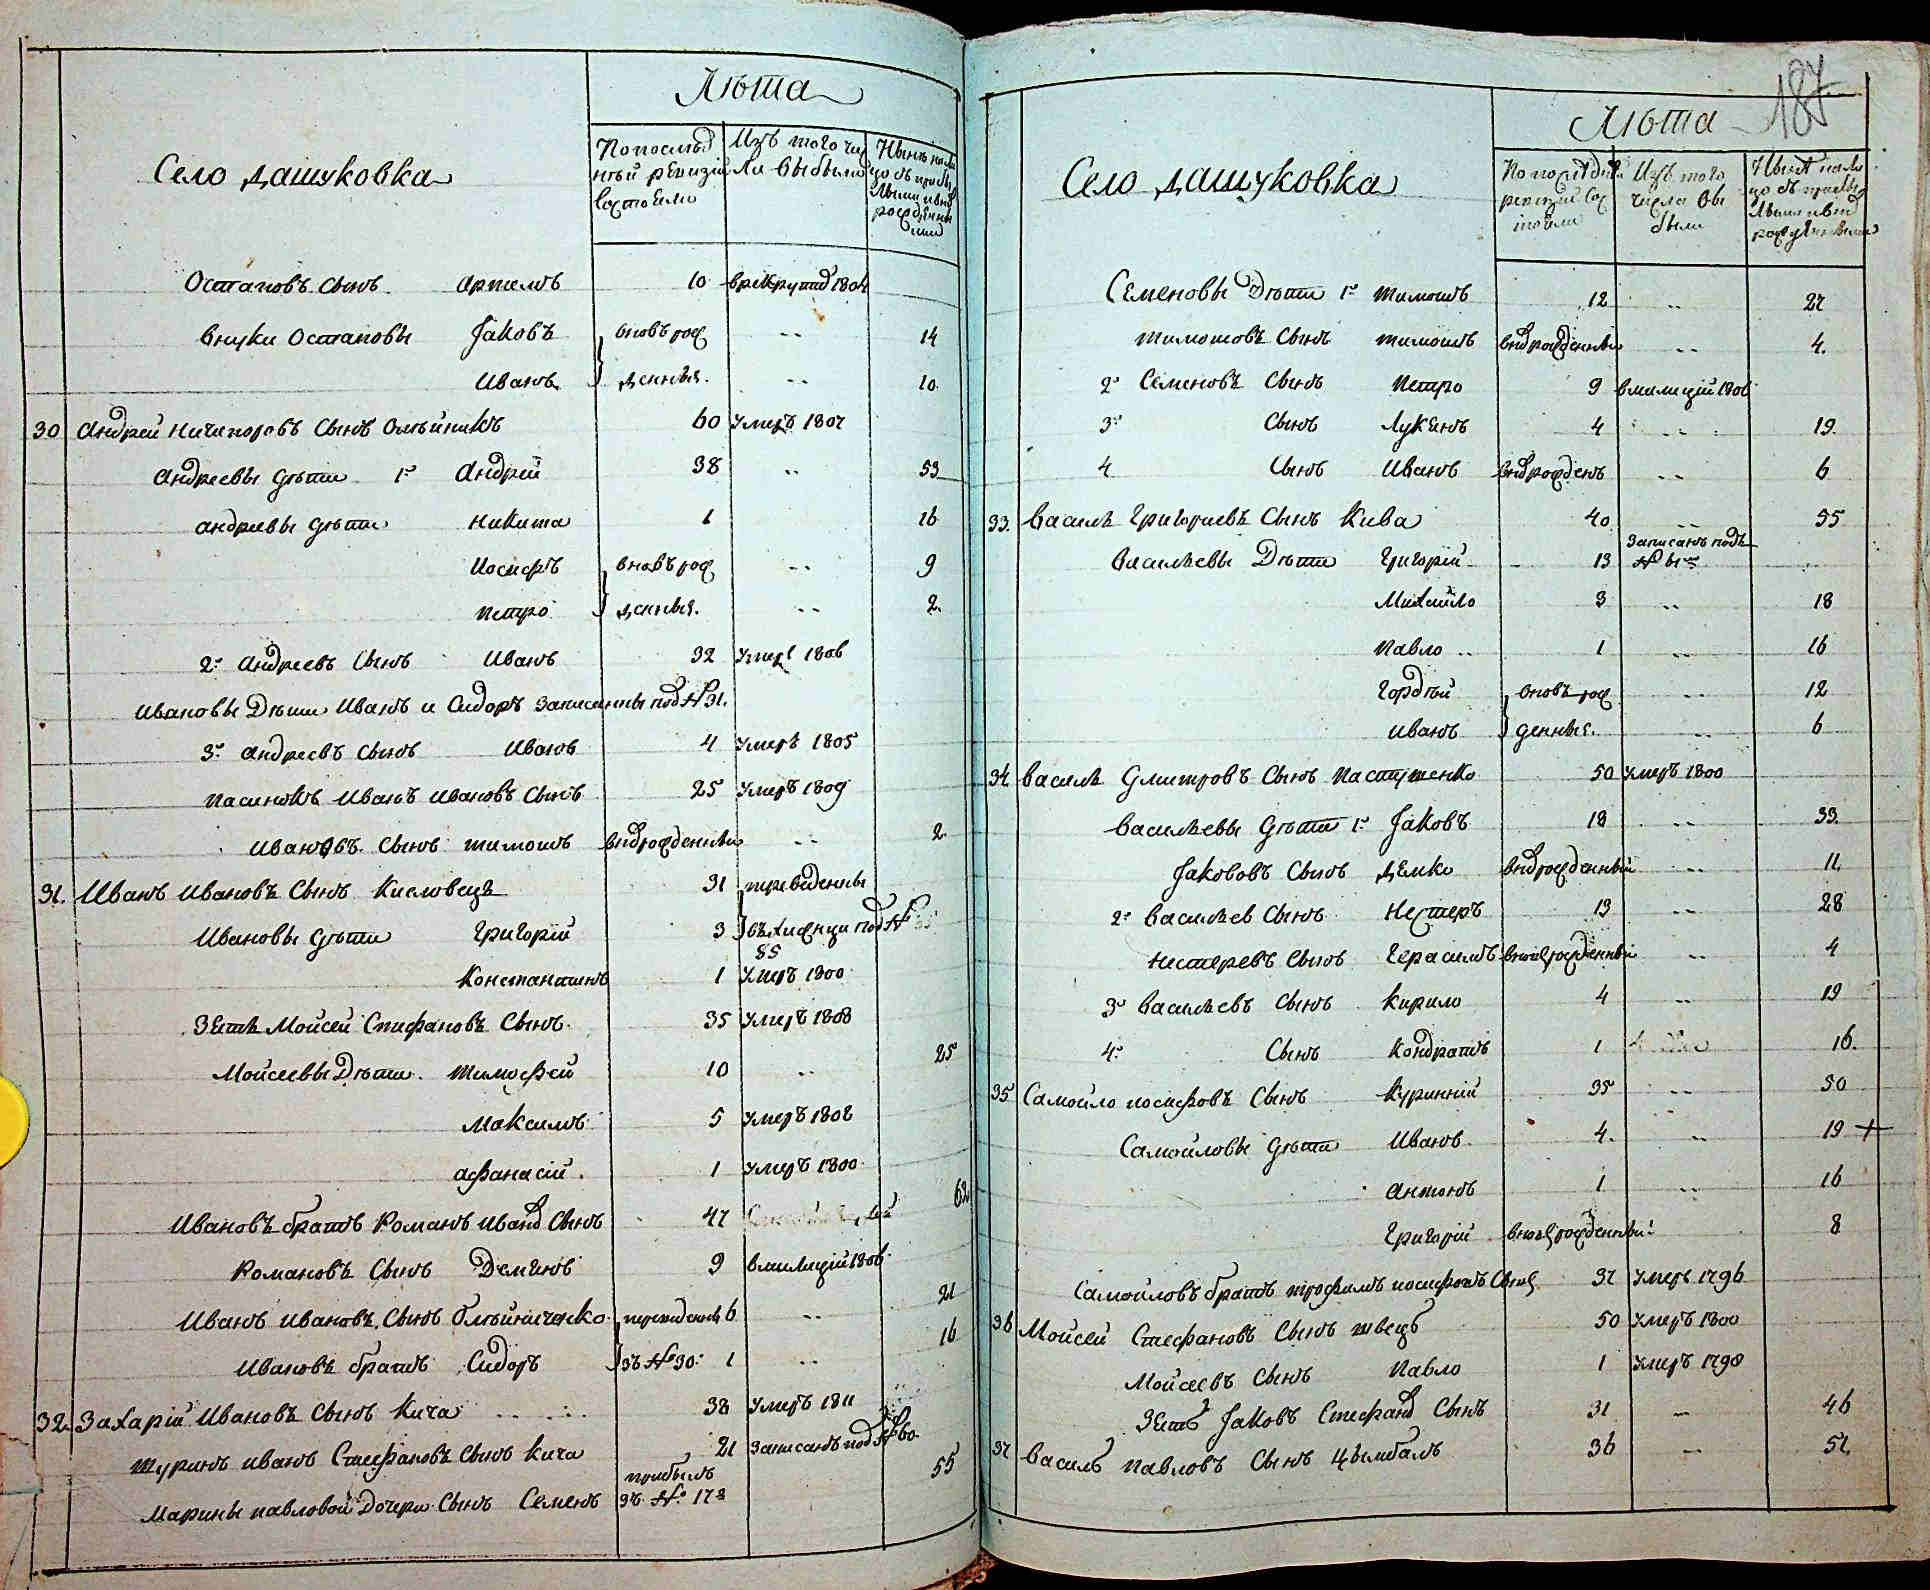 Лѣта
Село Дашуковка
По послѣдней ревизіи состояли
Изъ того числа выбыли
Нынѣ на лицо
Остаповъ сынъ Артемъ 10 в рекруты 1804
внуки Остаповы Яковъ вновь рож 14
Иванъ денныя. 10
30 Андрей Ничипоровъ сынъ Олѣйникъ 60 умеръ 1807
Андреевы дѣти 1й Андрей 38 53
Андреевы дѣти Никита 1 16
Иосифъ вновь рож 9
Петро денныя. 2.
2й Андреевъ сынъ Иванъ 32 умеръ 1806
Ивановы Дѣти Иванъ и Сидоръ записанны под № 31.
3й Андреевъ сынъ Иванъ 4 умеръ 1805
Пасинокъ Иванъ Ивановъ сынъ 25 умеръ 1809
Ивановъ сынъ Тимошъ вноворожденный 2
31. Иванъ Ивановъ сынъ Кисловецъ 31 переведенны
Ивановы дѣти Григорій 3 под №
85
Константинъ 1 умеръ 1800
Зять Мойсей Стефановъ сынъ 35 умеръ 1808
Мойсеевы Дѣти Тимофей 10 25
Максимъ 5 умеръ 1808
Афанасій 1 умеръ 1800
Ивановъ братъ Романъ Иванов сынъ 47 62
Романовъ сынъ Демянъ 9 в милицій 1806
Иванъ Ивановъ сынъ Олѣйниченко переведенны 6 21
Ивановъ братъ Сидоръ зъ № 30: 1 16
32. Захарій Ивановъ сынъ Кича 38 умеръ 1811
Шуринъ Иванъ Стефановъ сынъ Кича 21 записанъ под № 60
прибылъ
Марины Павловой Дочери сынъ Семенъ зъ № 178 55
187
Лѣта
Село Дашуковка
По послѣдней ревизій состояли
Изъ того числа выбыли
Нынѣ на лицо
Семеновы Дѣти 1й Тимошъ 12 27
Тимошовъ сынъ Тимошъ вноврожденный 4.
2й Семеновъ сынъ Петро 9 в милицій 1806
3й сынъ Лукянъ 4 19.
4 сынъ Иванъ вноврожденъ 6
33. Василь Григориевъ сынъ Кива 40 55
Записанъ подъ
Васильевы Дѣти Григорій 13 № 61мъ
Михайло 3 18
Павло 1 16
Гордѣй вновь рож 12
Иванъ денныя. 6
34 Василь Дмитровъ сынъ Пастушенко 50 умеръ 1800
Васильевы дѣти 1й Яковъ 18 33.
Якововъ сынъ Демко вноврожденный 11.
2й Васильев сынъ Нестеръ 13 28
Нестеревъ сынъ Герасимъ вноврожденный 4
3й Васильевъ сынъ Кирило 4 19
4й сынъ Кондратъ 1 16.
35 Самойло Иосифовъ сынъ Куринній 35 50
Самойловы дѣти Иванъ 4. 19 +
Антонъ 1 16
Григорій вноврожденный 8
Самойловъ братъ Трофимъ Иосифовъ сынъ 37 умеръ 1796
36 Мойсей Стефановъ сынъ Швецъ 50 умеръ 1800
Мойсеевъ сынъ Павло 1 умеръ 1798
Зять Яковъ Стефанов сынъ 31 46
37 Василь Павловъ сынъ Цымбалъ 36 51.